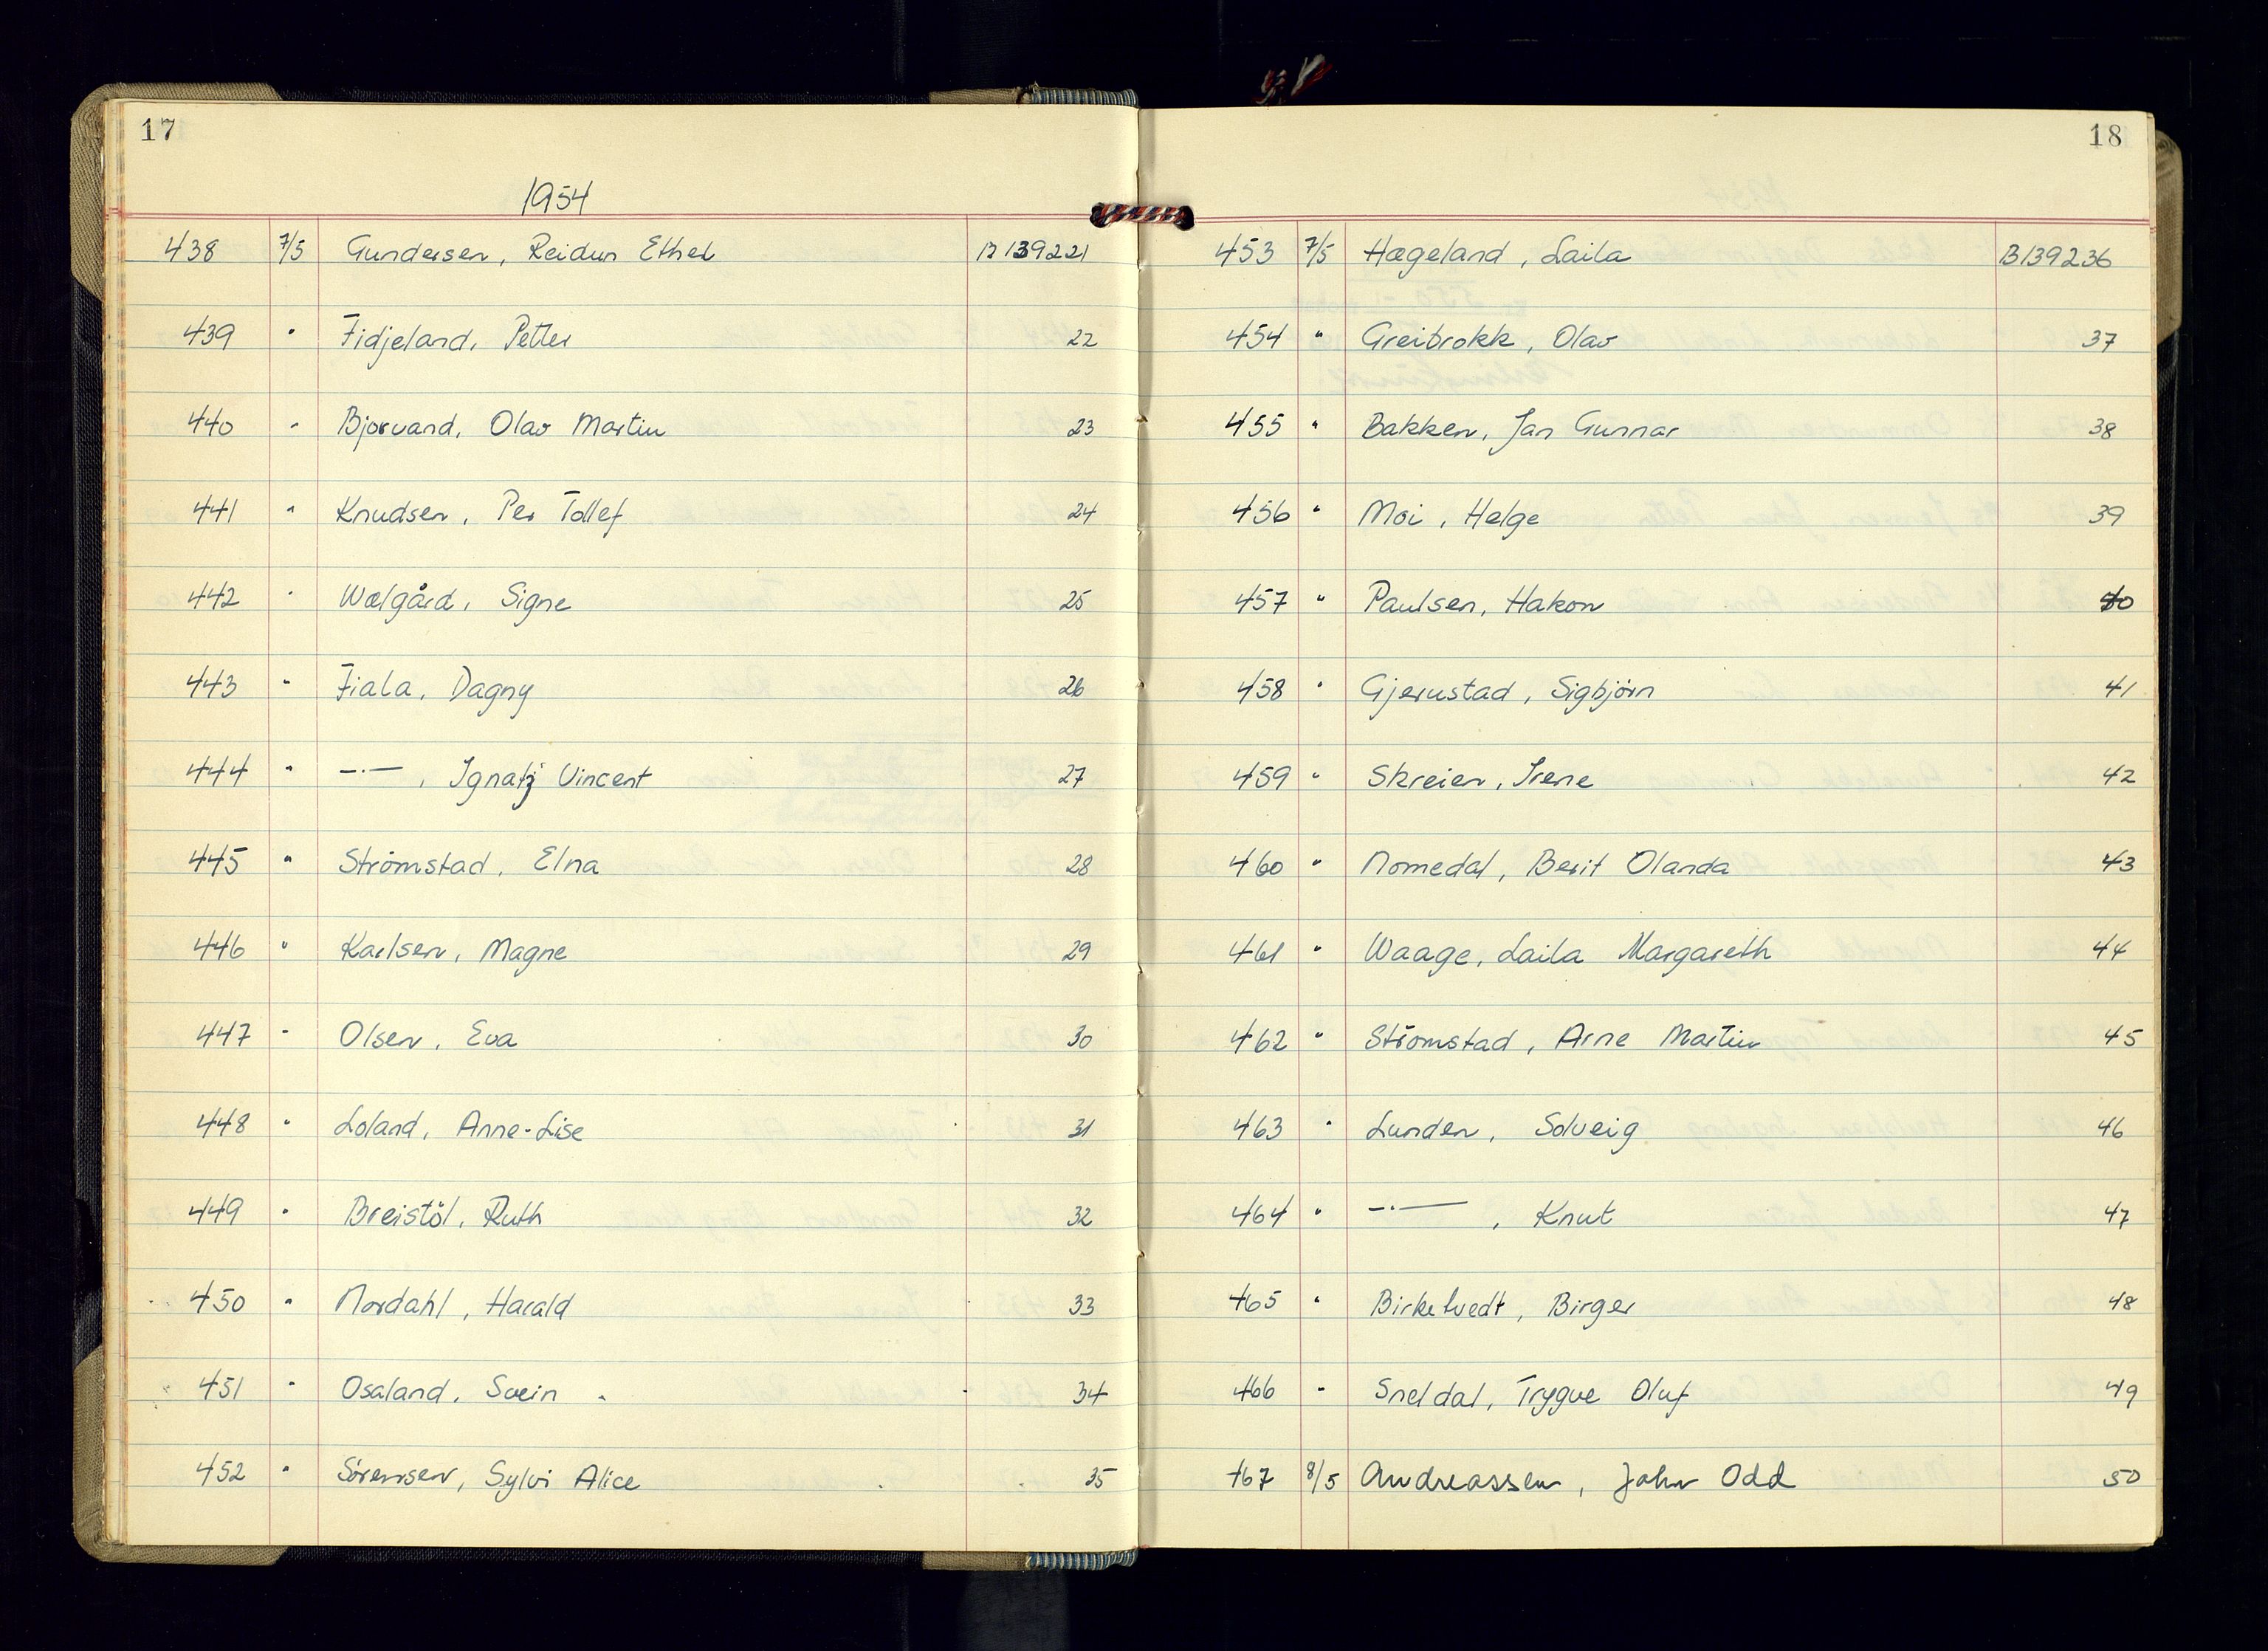 17
1954
438 7/5 Gundersen, Reidun Ethel B139221
439 " Fidjeland, Petter 22
440 " Bjorvand, Olav Martin 23
441 " Knudsen, Per Tollef 24
442 " Wælgård, Signe 25
443 " Fiala, Dagny 26
444 " —·—, Ignatz Vincent 27
445 " Strömstad, Elna 28
446 " Karlsen, Magne 29
447 " Olsen, Eva 30
448 " Loland, Anne-Lise 31
449 " Breistöl, Ruth 32
450 " Nordahl, Harald 33
451 " Osaland, Svein 34
452 " Sörensen, Sylvi Alice 35
18
453 7/5 Hægeland, Laila B139236
454 " Greibrokk, Olav 37
455 " Bakken, Jan Gunnar 38
456 " Moi, Helge 39
457 " Paulsen, Hakon 40
458 " Gjerustad, Sigbjörn 41
459 " Skreien, Irene 42
460 " Nomedal, Berit Olanda 43
461 " Waage, Laila Margareth 44
462 " Strömstad, Arne Martin 45
463 " Lunden, Solveig 46
464 " —·—, Knut 47
465 " Birketvedt, Birger 48
466 " Sneldal, Trygve Oluf 49
467 8/5 Andreassen, John Odd 50